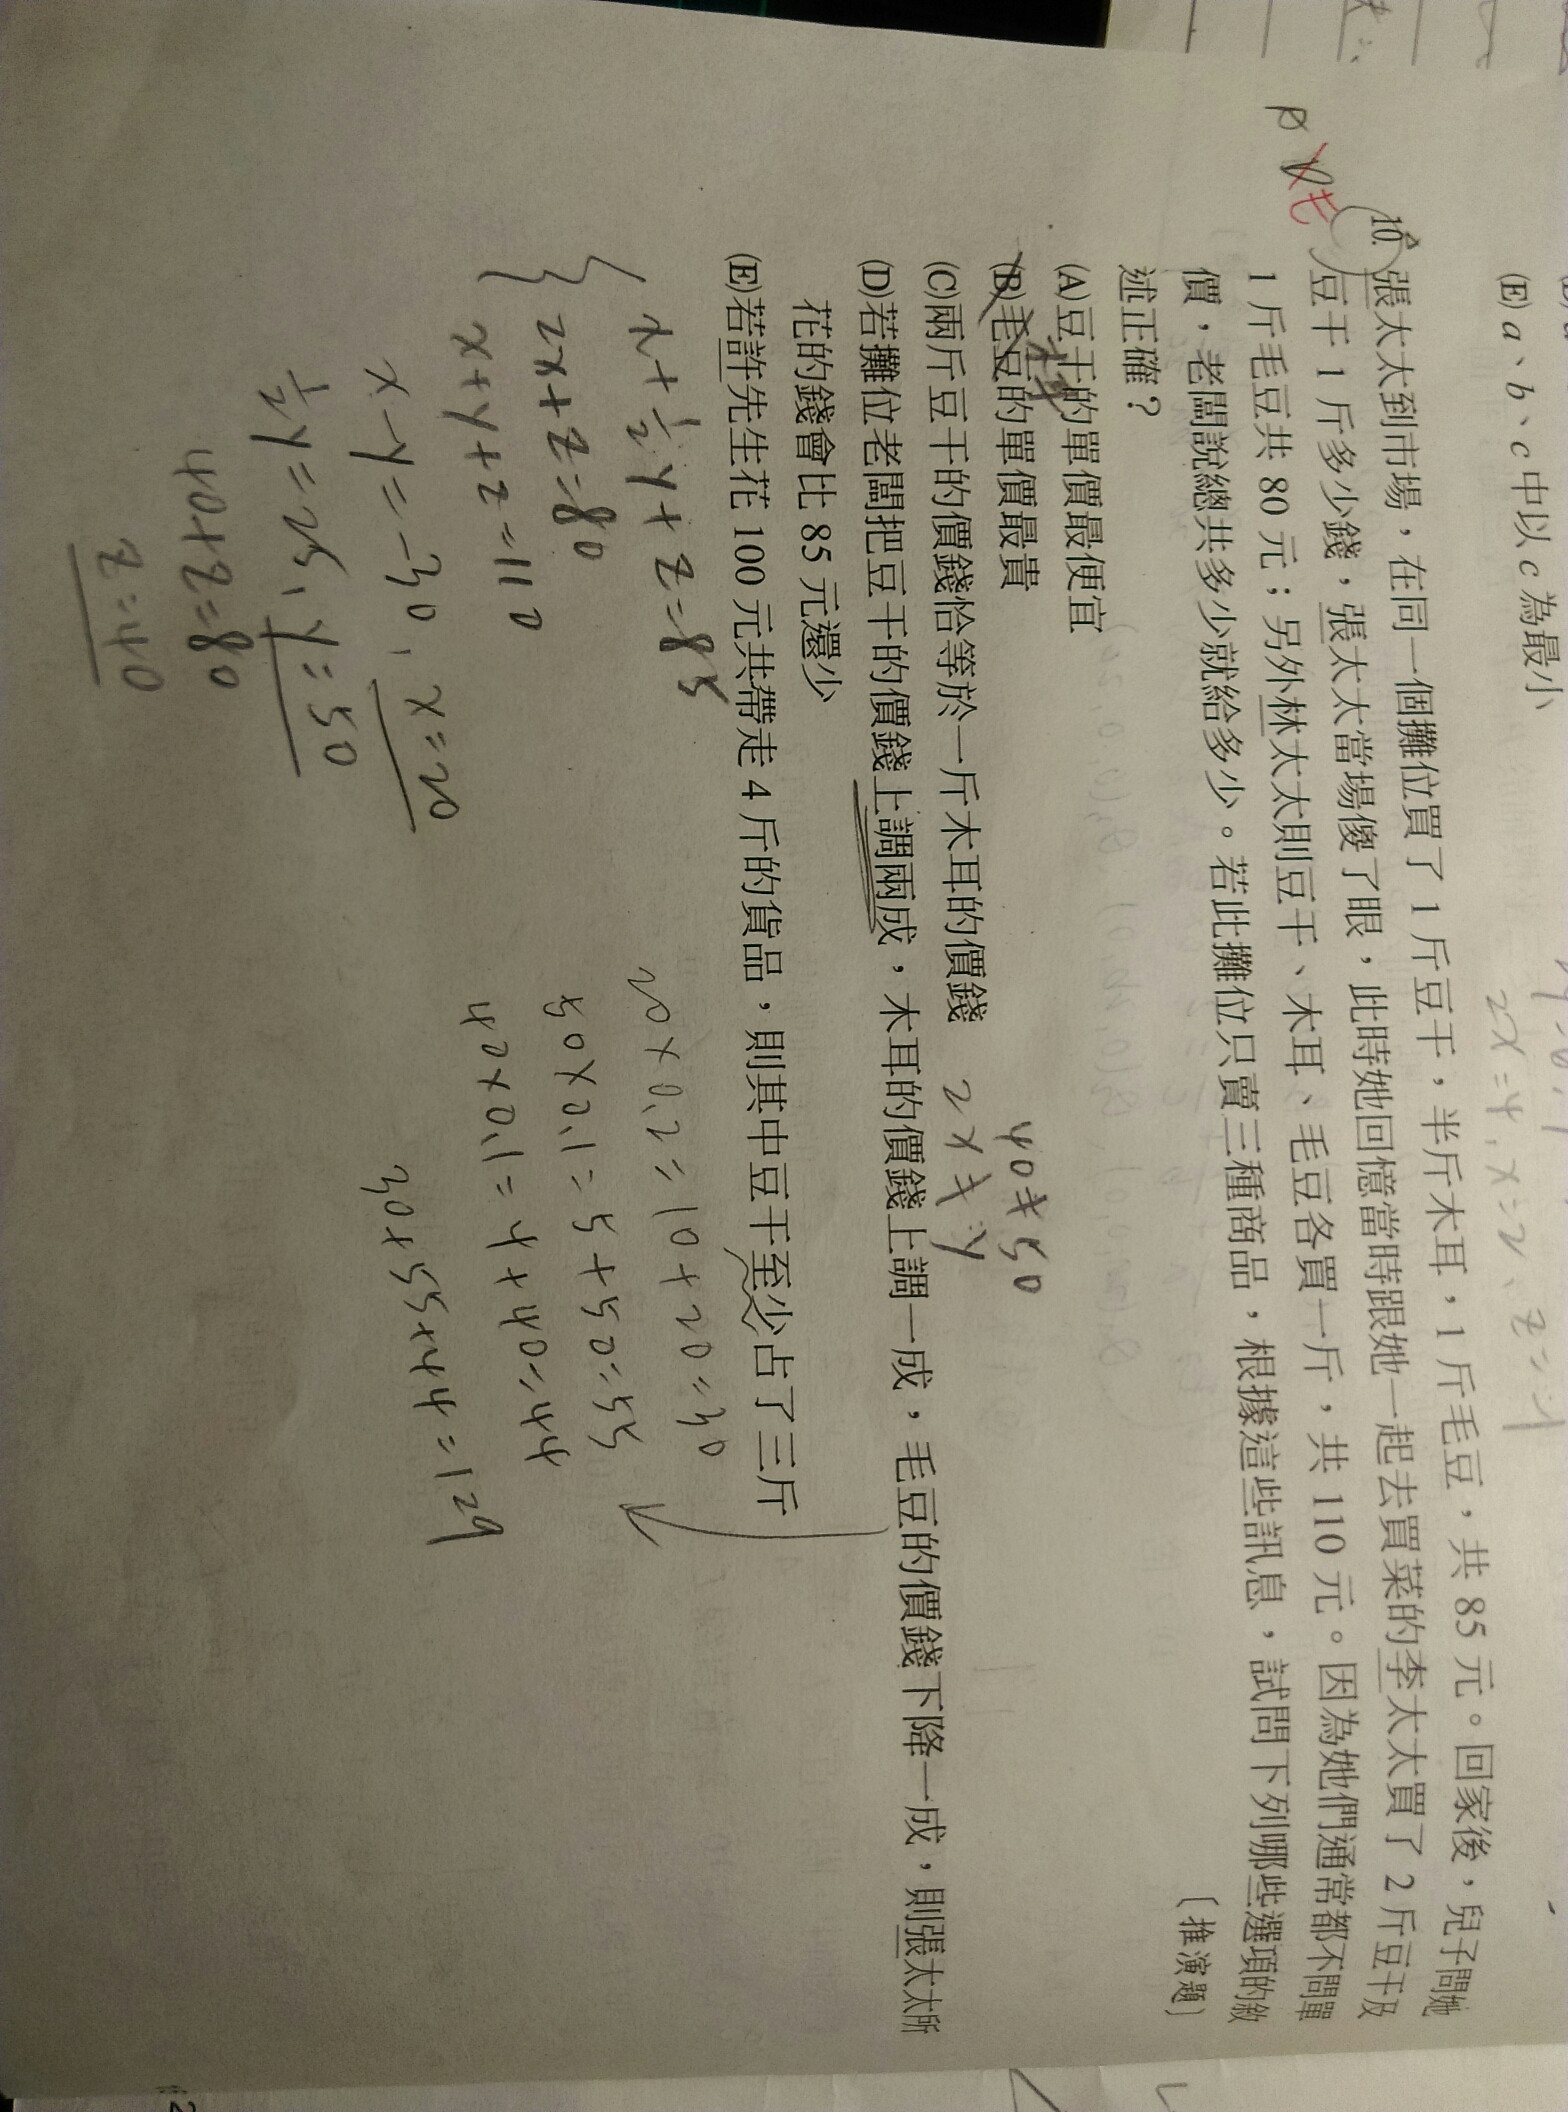 (E) a、b、c中以c為最小
2x=4, x=2、z=-1
10. 張太太到市場，在同一個攤位買了1斤豆干，半斤木耳，1斤毛豆，共85元。回家後，兒子問她
豆干1斤多少錢，張太太當場傻了眼，此時她回憶當時跟她一起去買菜的李太太買了2斤豆干及
1斤毛豆共80元；另外林太太則豆干、木耳、毛豆各買一斤，共110元。因為她們通常都不問單
價，老闆說總共多少就給多少。若此攤位只賣三種商品，根據這些訊息，試問下列哪些選項的敘
述正確？
〔推演題〕
(A)豆干的單價最便宜
(B)毛豆的單價最貴
木耳
(C)兩斤豆干的價錢恰等於一斤木耳的價錢
40≠50
2x≠y
(D)若攤位老闆把豆干的價錢上調兩成，木耳的價錢上調一成，毛豆的價錢下降一成，則張太太所
花的錢會比85元還少
(E)若許先生花100元共帶走4斤的貨品，則其中豆干至少占了三斤
x+½y+z=85
2x+z=80
x+y+z=110
x-y=-30, x=20
½y=25, y=50
40+z=80
z=40
20×0.2=10+20=30
50×0.1=5+50=55
40×0.1=4+40=44
30+55+44=129